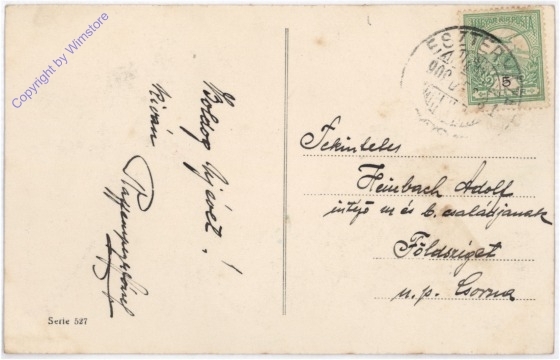 Copyright by Wimstore
Boldog új évet!
kíván
Serie 527
MAGYAR KIR. POSTA
5
ESZTER
Tekintetes
Heinbach Adolf
intéző úr és b. családjának
Földsziget
u. p. Csorna